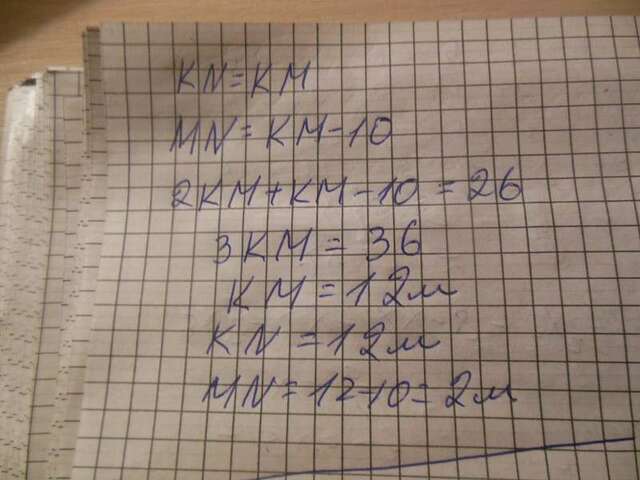 KN=KM
MN=KM-10
2KM+KM-10=26
3KM=36
KM=12м
KN=12м
MN=12-10=2м